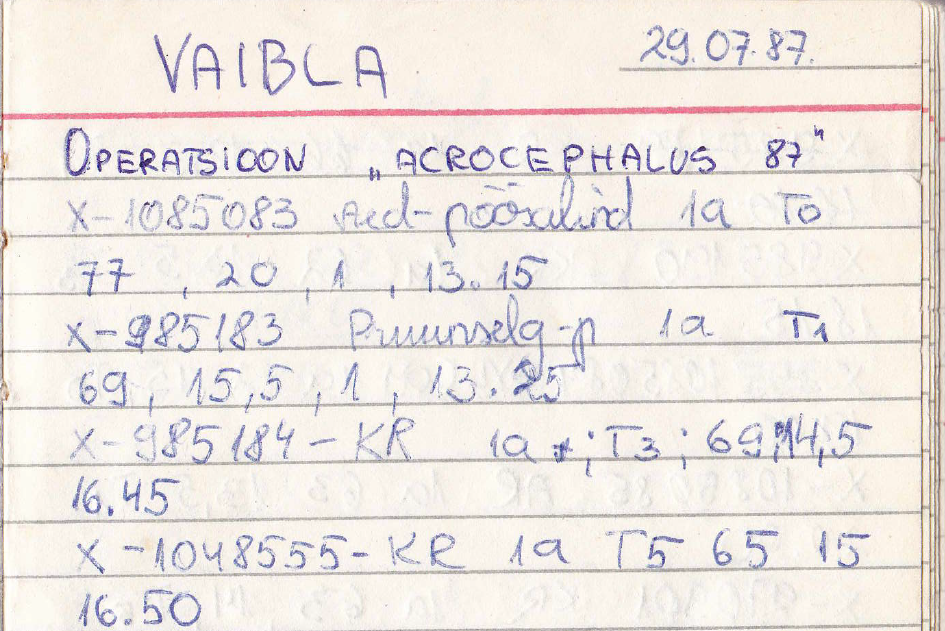 VAIBLA
29.07.87.
OPERATSIOON „ACROCEPHALUS 87"
X-1085083 Aed-põõsalind 1a T0
77 , 20 , 1 , 13.15
X-985183 Pruunselg-p 1a T1
69, 15,5 , 1 , 13.25
X-985184-KR 1a ; T3 ; 69; 14,5
16.45
X-1048555-KR 1a T5 65 15
16.50